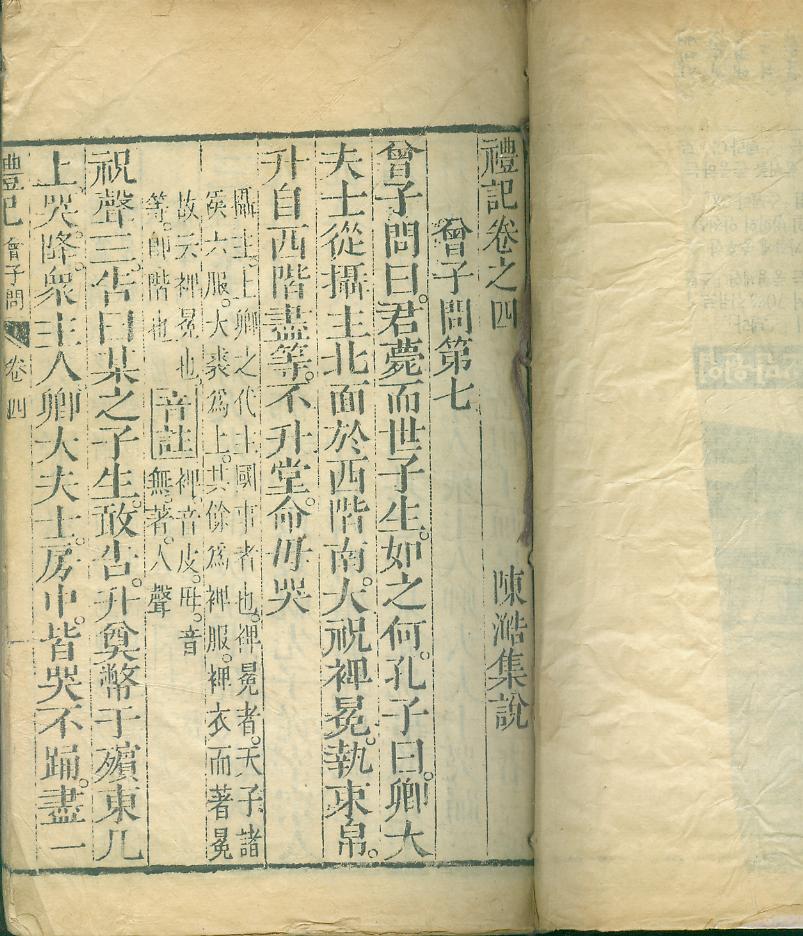 禮記卷之四
陳澔集說
曾子問第七
曾子問曰。君薨而世子生。如之何。孔子曰。卿大
夫士從攝主北面於西階南。大祝裨冕。執束帛。
升自西階盡等。不升堂。命毋哭
攝主。上卿之代主國事者也。裨冕者。天子諸
侯六服。大裘爲上。其餘爲裨服。裨衣而著冕
故云裨冕也。音註裨。音皮。毋。音
等。卽階也無。著。入聲
祝聲三。告曰某之子生。敢告。升奠幣于殯東几
上哭降。衆主人卿大夫士。房中。皆哭不踊。盡一
禮記 曾子問 卷四